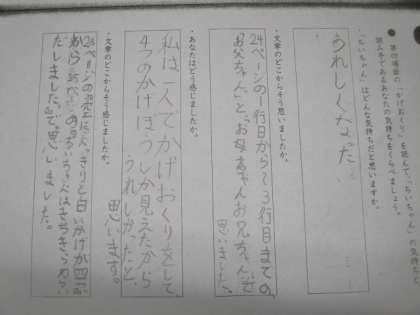 第四場面の「かげおくり」を読んで、「ちいちゃん」の気持ちと
読み手であるあなたの気持ちをくらべましょう。
・「ちいちゃん」はどんな気持ちだと思いますか。
うれしくなった
・文章のどこからそう思いましたか。
24ページの1行目から3行目までの
お父ちゃんと、お母ちゃんお兄ちゃん
思いました。
・あなたはどう感じましたか。
私は一人でかげおくりをして
4つのかげぼうしが見えたから
うれしかったと
思います。
・文章のどこからそう思いましたか。
きりと白いかげが四つ
から
だしました。で思いました。